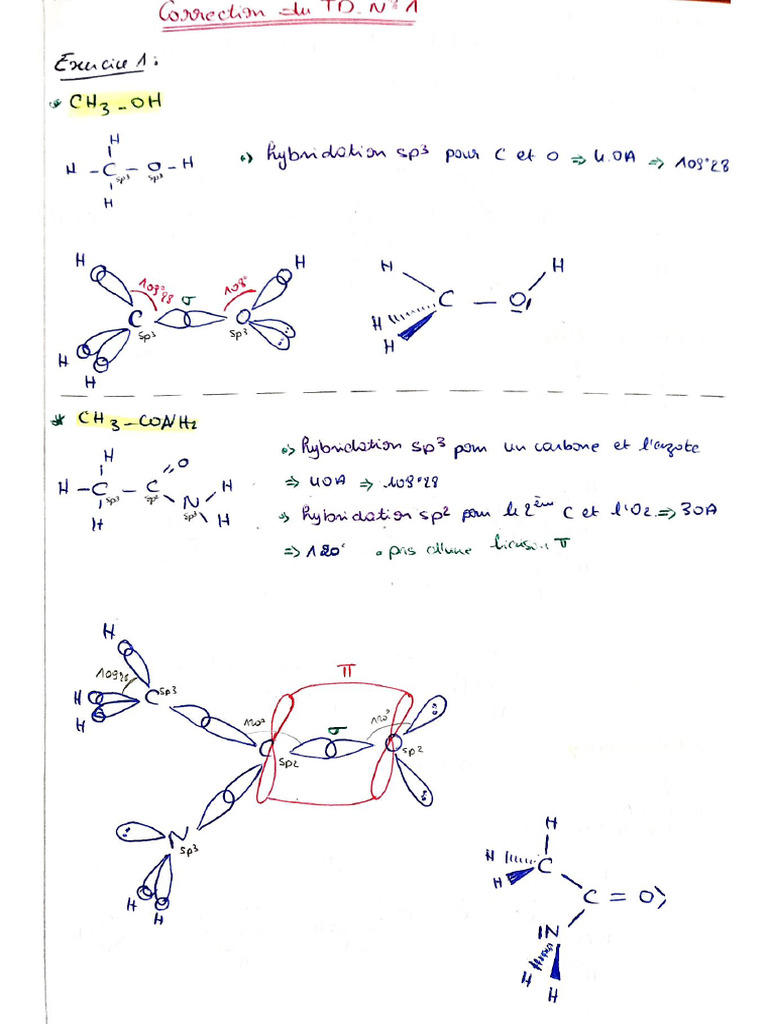 Correction du TD. N°1
Exercice 1:
* CH3-OH
H
H - C - O - H
sp3 sp3
H
•) hybridation sp3 pour C et O ⇒ 4.OA ⇒ 109°28
H H
109°28 σ 108°
C O
sp3 sp3
H
H
H H
C - O
H
H
* CH3-CONH2
H
O
H - C - C
sp3 sp2
N H
sp3
H H
•) hybridation sp3 pour un carbone et l'azote
⇒ 4OA ⇒ 109°28
•) hybridation sp2 pour le 2ème C et l'O2 ⇒ 3OA
⇒ 120° . liaison π
H
10928
H C sp3
H
π
120° σ 120°
C O
sp2 sp2
N
sp3
H H
H
H
C
H
C = O
N
H H